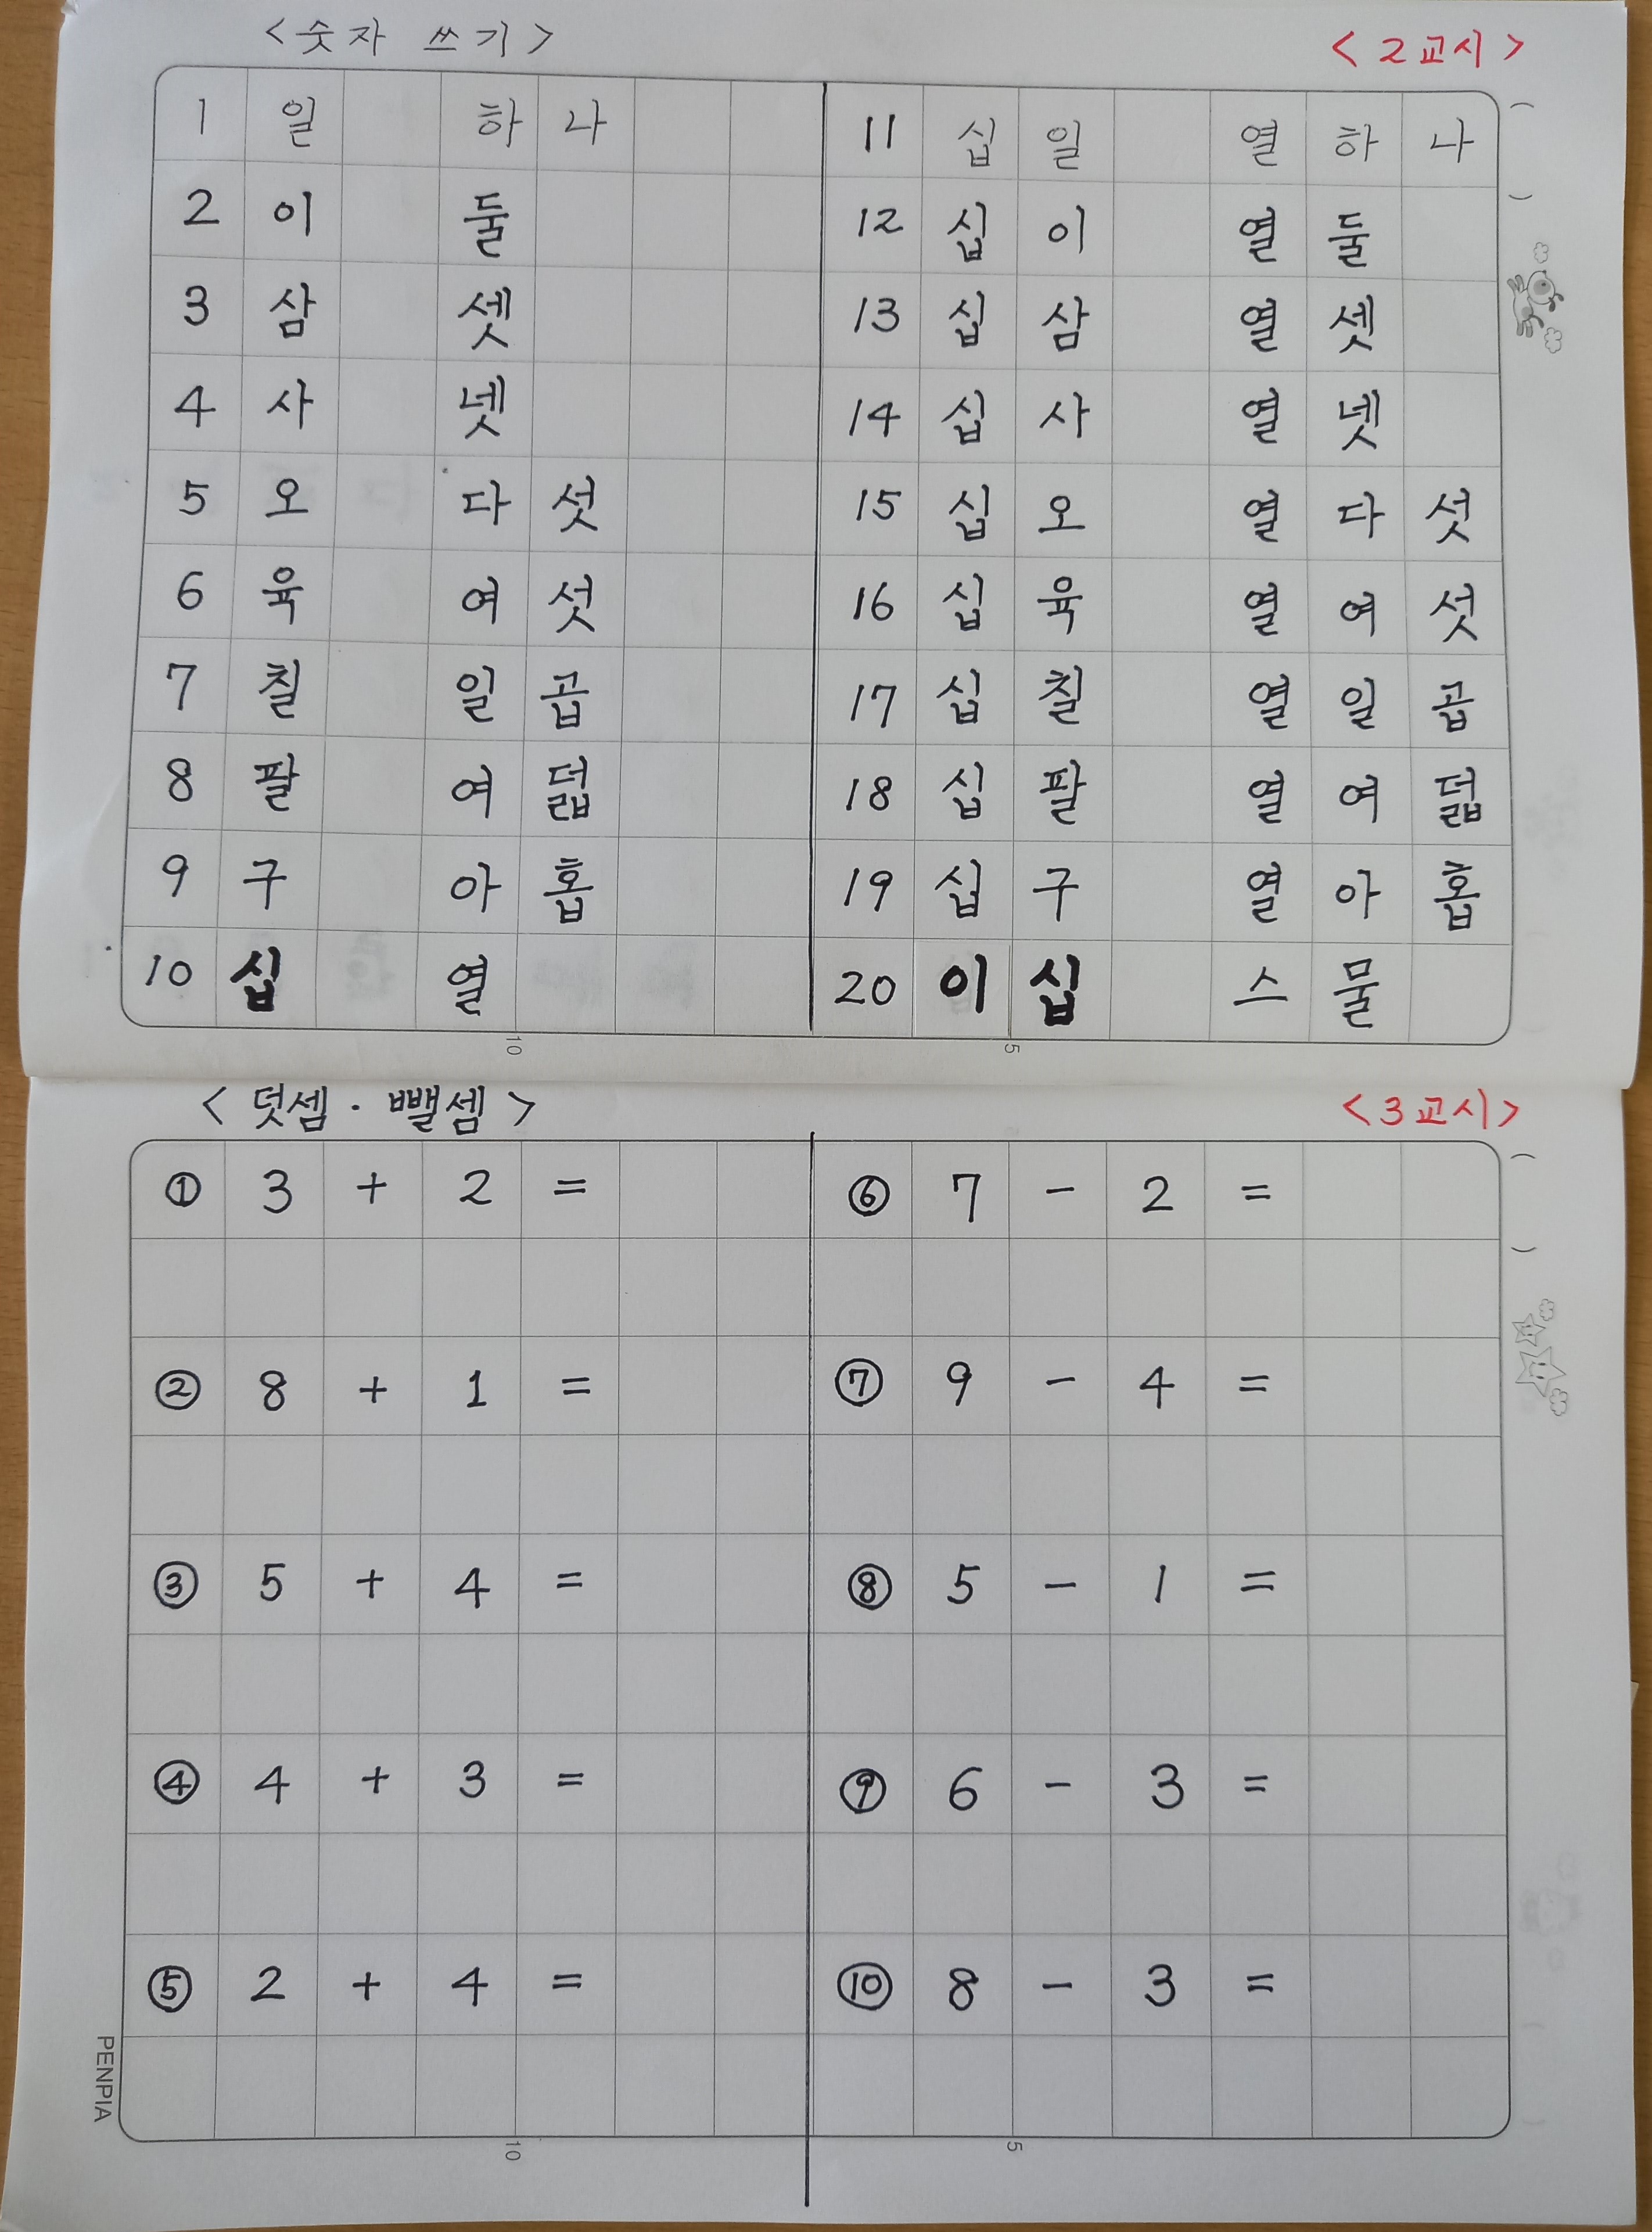 <숫자 쓰기> <2교시>
1 일 하나 11 십일 열하나
2 이 둘 12 십이 열둘
3 삼 셋 13 십삼 열셋
4 사 넷 14 십사 열넷
5 오 다섯 15 십오 열다섯
6 육 여섯 16 십육 열여섯
7 칠 일곱 17 십칠 열일곱
8 팔 여덟 18 십팔 열여덟
9 구 아홉 19 십구 열아홉
10 십 열 20 이십 스물
10 5
<덧셈 · 뺄셈> <3교시>
① 3 + 2 = ⑥ 7 - 2 =
② 8 + 1 = ⑦ 9 - 4 =
③ 5 + 4 = ⑧ 5 - 1 =
④ 4 + 3 = ⑨ 6 - 3 =
⑤ 2 + 4 = ⑩ 8 - 3 =
PENPIA
10 5